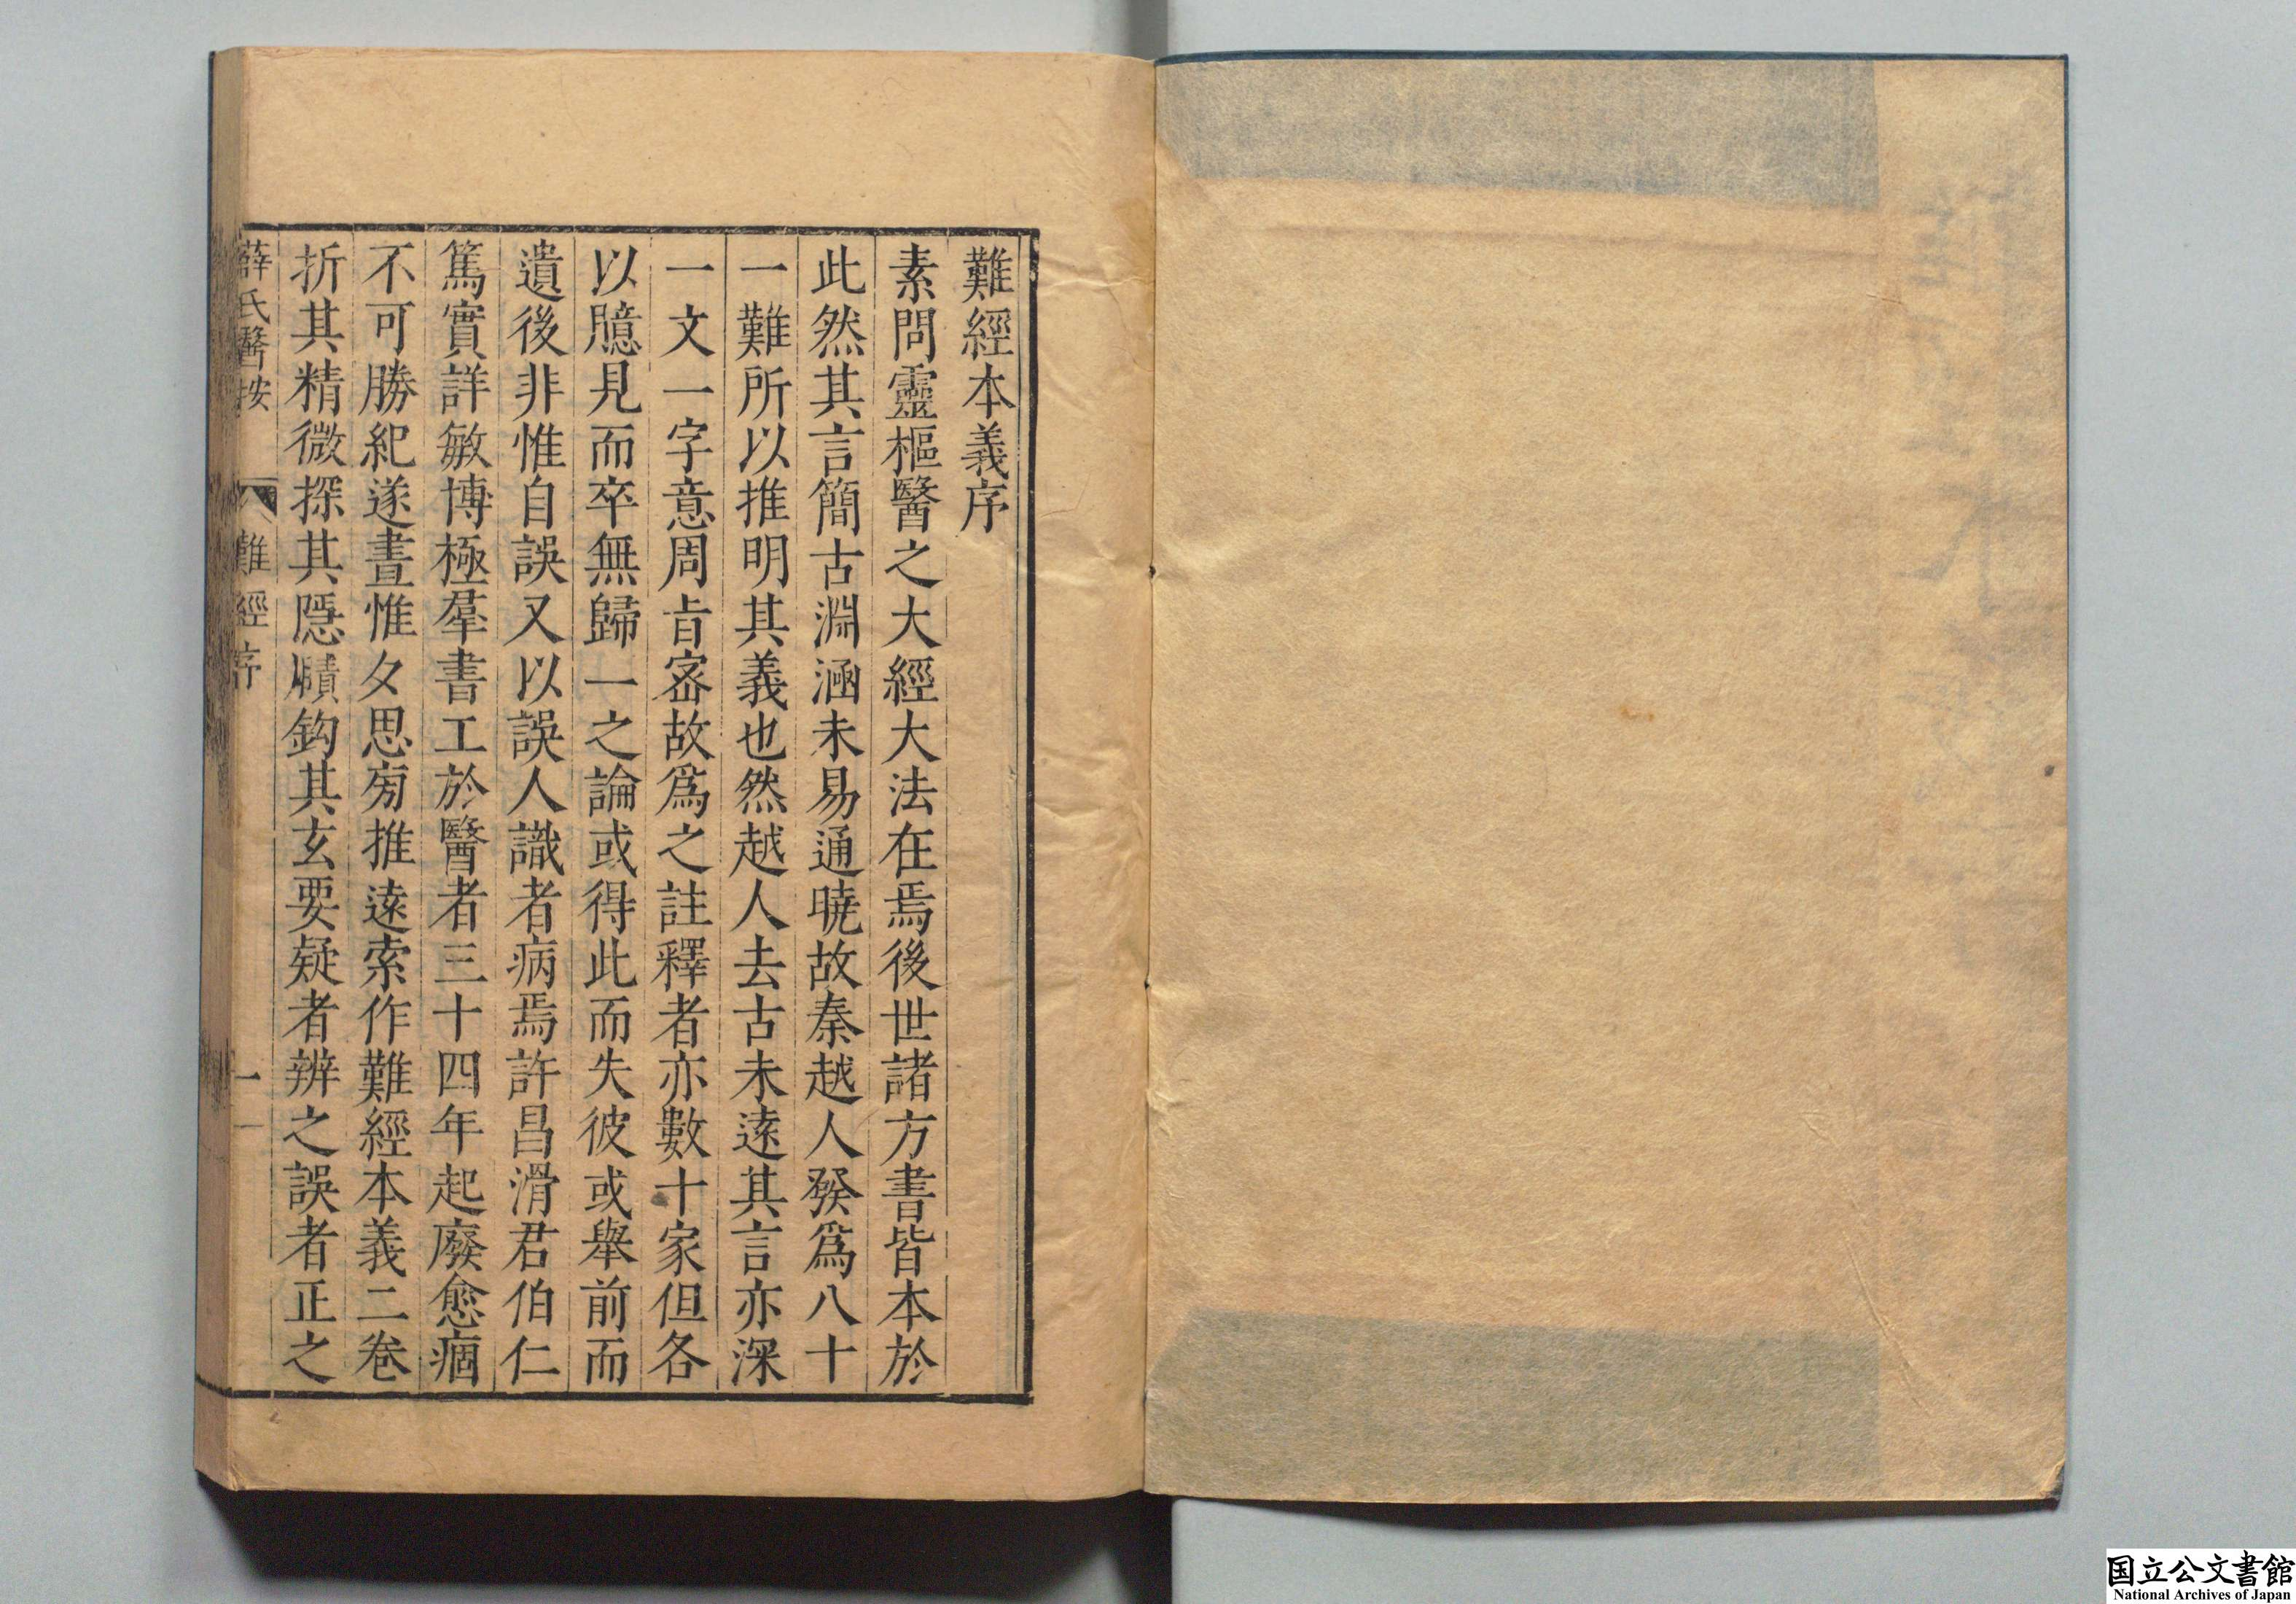 難經本義序
素問靈樞醫之大經大法在焉後世諸方書皆本於
此然其言簡古淵涵未易通曉故秦越人發爲八十
一難所以推明其義也然越人去古未遠其言亦深
一文一字意周旨密故爲之註釋者亦數十家但各
以臆見而卒無歸一之論或得此而失彼或舉前而
遺後非惟自誤又以誤人識者病焉許昌滑君伯仁
篤實詳敏博極羣書工於醫者三十四年起廢愈痼
不可勝紀遂晝惟夕思旁推遠索作難經本義二卷
折其精微探其隱賾鈎其玄要疑者辨之誤者正之
薛氏醫按 難經序 一
国立公文書館
National Archives of Japan